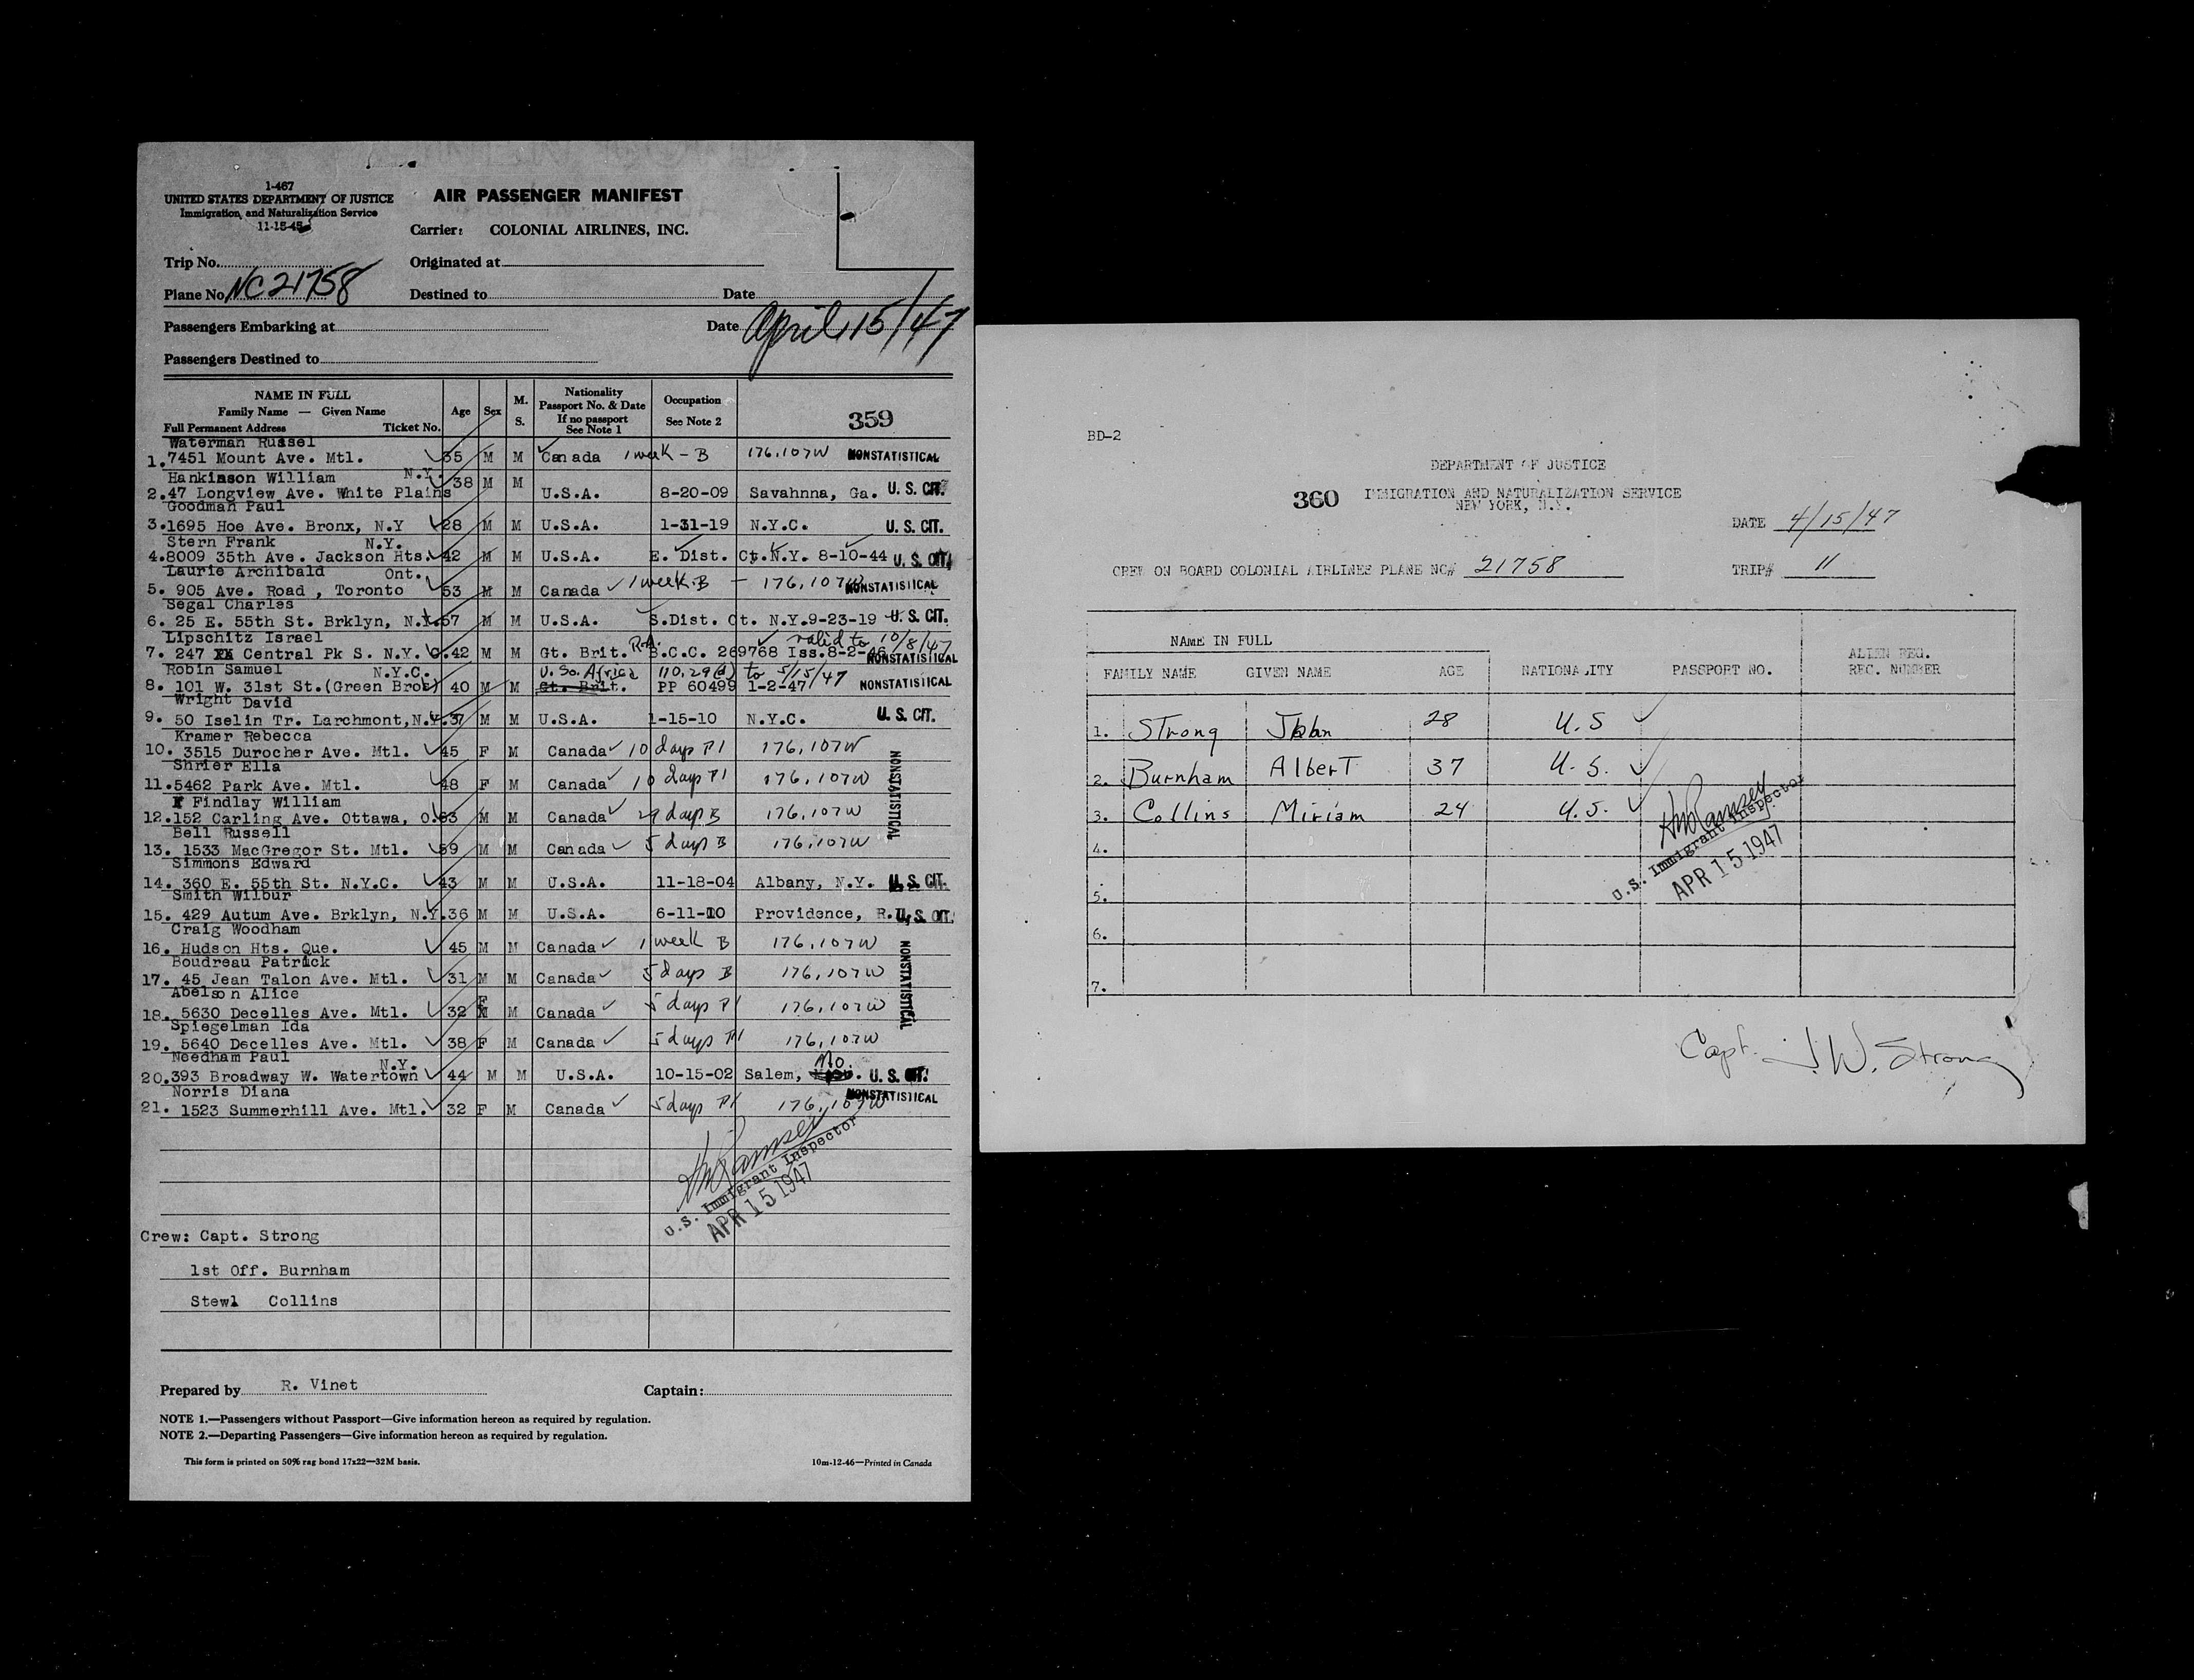 1-467
UNITED STATES DEPARTMENT OF JUSTICE
Immigration and Naturalization Service
11-15-45
AIR PASSENGER MANIFEST
Carrier: COLONIAL AIRLINES, INC.
Trip No.
Originated at
Plane No. NC 21758
Destined to Date
Passengers Embarking at Date April 15/47
Passengers Destined to
NAME IN FULL
Family Name — Given Name
Full Permanent Address Ticket No.
Age Sex M. S.
Nationality
Passport No. & Date
If no passport
See Note 1
Occupation
See Note 2
359
Waterman Russel
1. 7451 Mount Ave. Mtl. 35 M M Canada 1 week - B 176.107W NONSTATISTICAL
Hankinson William N.Y.
2. 47 Longview Ave. White Plains 38 M M U.S.A. 8-20-09 Savahnna, Ga. U. S. CIT.
Goodman Paul
3. 1695 Hoe Ave. Bronx, N.Y 28 M M U.S.A. 1-31-19 N.Y.C. U. S. CIT.
Stern Frank N.Y.
4. 8009 35th Ave. Jackson Hts. 42 M M U.S.A. E. Dist. Ct. N.Y. 8-10-44 U. S. CIT.
Laurie Archibald Ont.
5. 905 Ave. Road , Toronto 53 M M Canada 1 week-B - 176.107W NONSTATISTICAL
Segal Charles
6. 25 E. 55th St. Brklyn, N.Y. 57 M M U.S.A. S.Dist. Ct. N.Y. 9-23-19 U. S. CIT.
Lipschitz Israel valid to 10/8/47
7. 247 Central Pk S. N.Y. C. 42 M M Gt. Brit. B.C.C. 269768 Iss. 8-2-46 NONSTATISTICAL
Robin Samuel N.Y.C. U. So. Africa 110.29(a) to 5/15/47
8. 101 W. 31st St. (Green Bros) 40 M M Gt. Brit. PP 60499 1-2-47 NONSTATISTICAL
Wright David
9. 50 Iselin Tr. Larchmont, N.Y. 37 M M U.S.A. 1-15-10 N.Y.C. U. S. CIT.
Kramer Rebecca
10. 3515 Durocher Ave. Mtl. 45 F M Canada 10 days Pl 176.107W
Shrier Ella
11. 5462 Park Ave. Mtl. 48 F M Canada 10 days Pl 176.107W
NONSTATISTICAL
Findlay William
12. 152 Carling Ave. Ottawa, O. 63 M M Canada 29 days B 176.107W
Bell Russell
13. 1533 MacGregor St. Mtl. 59 M M Canada 5 days B 176.107W
Simmons Edward
14. 360 E. 55th St. N.Y.C. 43 M M U.S.A. 11-18-04 Albany, N.Y. U. S. CIT.
Smith Wilbur
15. 429 Autum Ave. Brklyn, N.Y. 36 M M U.S.A. 6-11-10 Providence, R.I. U. S. CIT.
Craig Woodham
16. Hudson Hts. Que. 45 M M Canada 1 week B 176.107W
Boudreau Patrick
17. 45 Jean Talon Ave. Mtl. 31 M M Canada 5 days B 176.107W
NONSTATISTICAL
Abelson Alice
18. 5630 Decelles Ave. Mtl. 32 F M Canada 5 days Pl 176.107W
Spiegelman Ida
19. 5640 Decelles Ave. Mtl. 38 F M Canada 5 days Pl 176.107W
Needham Paul N.Y.
20. 393 Broadway W. Watertown 44 M M U.S.A. 10-15-02 Salem, Mo. U. S. CIT.
Norris Diana
21. 1523 Summerhill Ave. Mtl. 32 F M Canada 5 days Pl 176.107W NONSTATISTICAL
HW Ramsey
U.S. Immigrant Inspector
APR 15 1947
Crew: Capt. Strong
1st Off. Burnham
Stew. Collins
Prepared by R. Vinet
Captain:
NOTE 1.—Passengers without Passport—Give information hereon as required by regulation.
NOTE 2.—Departing Passengers—Give information hereon as required by regulation.
This form is printed on 50% rag bond 17x22—32M basis.
10m-12-46—Printed in Canada
BD-2
DEPARTMENT OF JUSTICE
360 IMMIGRATION AND NATURALIZATION SERVICE
NEW YORK, N.Y.
DATE 4/15/47
CREW ON BOARD COLONIAL AIRLINES PLANE NO# 21758 TRIP# 11
NAME IN FULL
FAMILY NAME GIVEN NAME AGE NATIONALITY PASSPORT NO. ALIEN REG. REC. NUMBER
1. Strong John 28 U.S
2. Burnham Albert 37 U.S.
3. Collins Miriam 24 U.S.
4.
5.
6.
7.
HW Ramsey
U.S. Immigrant Inspector
APR 15 1947
Capt. J. W. Strong